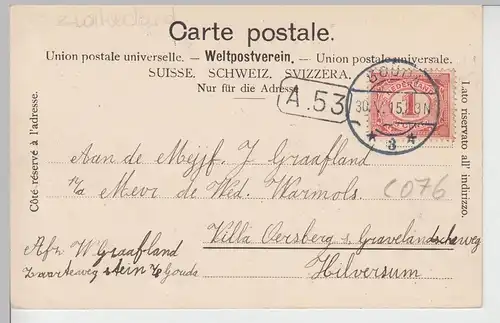 Carte postale.
Union postale universelle. – Weltpostverein. – Union postale universale.
SUISSE. SCHWEIZ. SVIZZERA.
Nur für die Adresse
Côté réservé à l'adresse.
Lato riservato all' indirizzo.
A.53
GOUDA
30. V. 15. N
3
NEDERLAND
1
Aan de Mejjf. J Graafland
p/a Mevr de Wed. Warmols.
C076
Villa Oersberg s. Gravelandscheweg
Hilversum
Afz W Graafland
Gouda